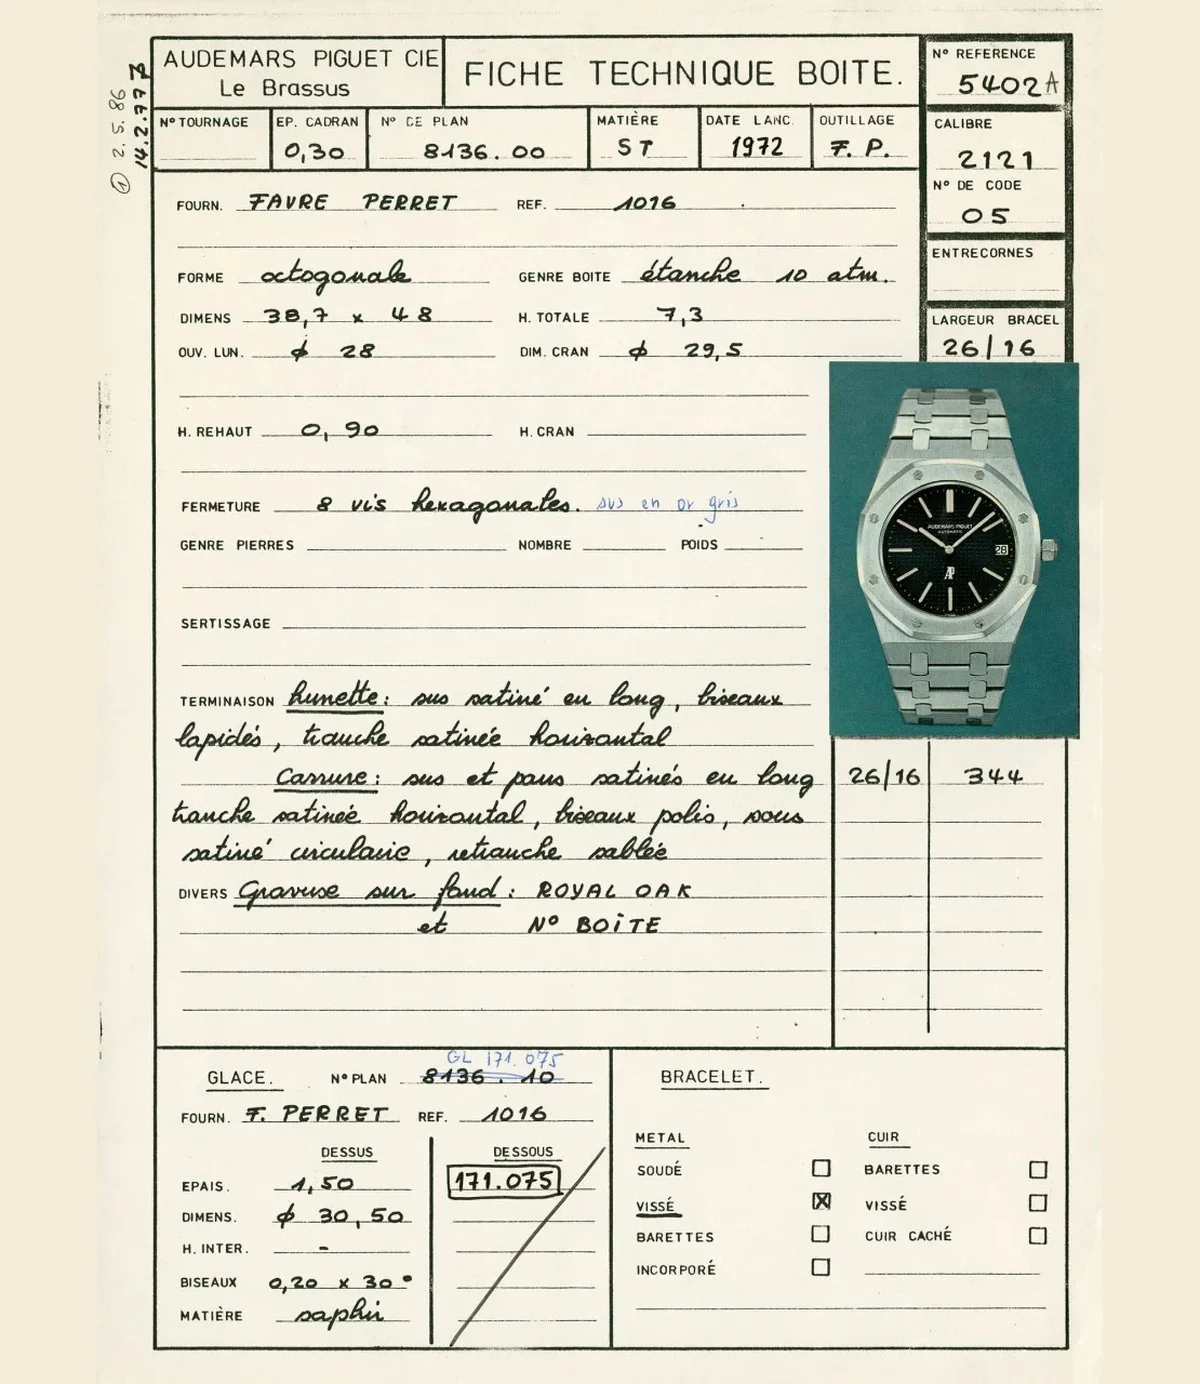 AUDEMARS PIGUET CIE
Le Brassus
FICHE TECHNIQUE BOITE.
N° REFERENCE
5402A
① 2. 5. 86
14.2.77
N° TOURNAGE
EP. CADRAN
0,30
N° DE PLAN
8136.00
MATIÈRE
ST
DATE LANC.
1972
OUTILLAGE
F. P.
CALIBRE
2121
N° DE CODE
05
ENTRECORNES
LARGEUR BRACEL
26/16
FOURN. FAVRE PERRET REF. 1016
FORME octogonale GENRE BOITE étanche 10 atm.
DIMENS 38,7 x 48 H. TOTALE 7,3
OUV. LUN. ϕ 28 DIM. CRAN ϕ 29,5
H. REHAUT 0,90 H. CRAN
FERMETURE 8 vis hexagonales. sus en or gris
GENRE PIERRES NOMBRE POIDS
SERTISSAGE
AUDEMARS PIGUET
AUTOMATIC
28
AP
TERMINAISON lunette: sus satiné en long, biseaux
lapidés, tranche satinée horizontal
Carrure: sus et pans satinés en long
tranche satinée horizontal, biseaux polis, sous
satiné circulaire, retranche sablée
26/16 344
DIVERS Gravure sur fond: ROYAL OAK
et N° BOITE
GLACE. N° PLAN 8136.10
GL 171.075
FOURN. F. PERRET REF. 1016
DESSUS DESSOUS
EPAIS. 1,50 171.075
DIMENS. ϕ 30,50
H. INTER. -
BISEAUX 0,20 x 30°
MATIÈRE saphir
BRACELET.
METAL CUIR
SOUDÉ BARETTES
VISSÉ VISSÉ
BARETTES CUIR CACHÉ
INCORPORÉ